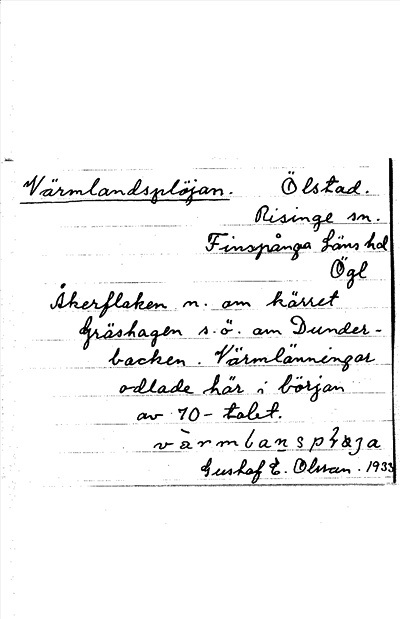 Värmlandsplöjan. Ölstad.
Risinge sn.
Finspånga Läns hd
Ögl
Åkerflaken n. om kärret
Gräshagen s.ö. om Dunder-
backen. Värmlänningar
odlade här i början
av 70-talet.
Gustaf E. Olsson. 1933